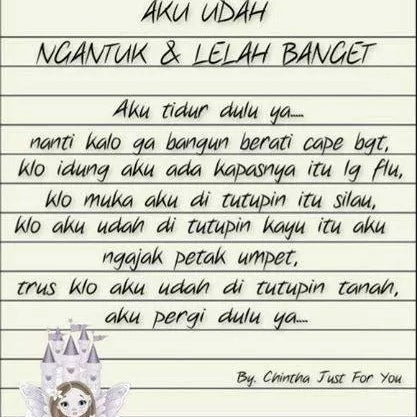 AKU UDAH
NGANTUK & LELAH BANGET
Aku tidur dulu ya.....
nanti kalo ga bangun berati cape bgt,
klo idung aku ada kapasnya itu lg flu,
klo muka aku di tutupin itu silau,
klo aku udah di tutupin kayu itu aku
ngajak petak umpet,
trus klo aku udah di tutupin tanah,
aku pergi dulu ya.....
By. Chintha Just For You